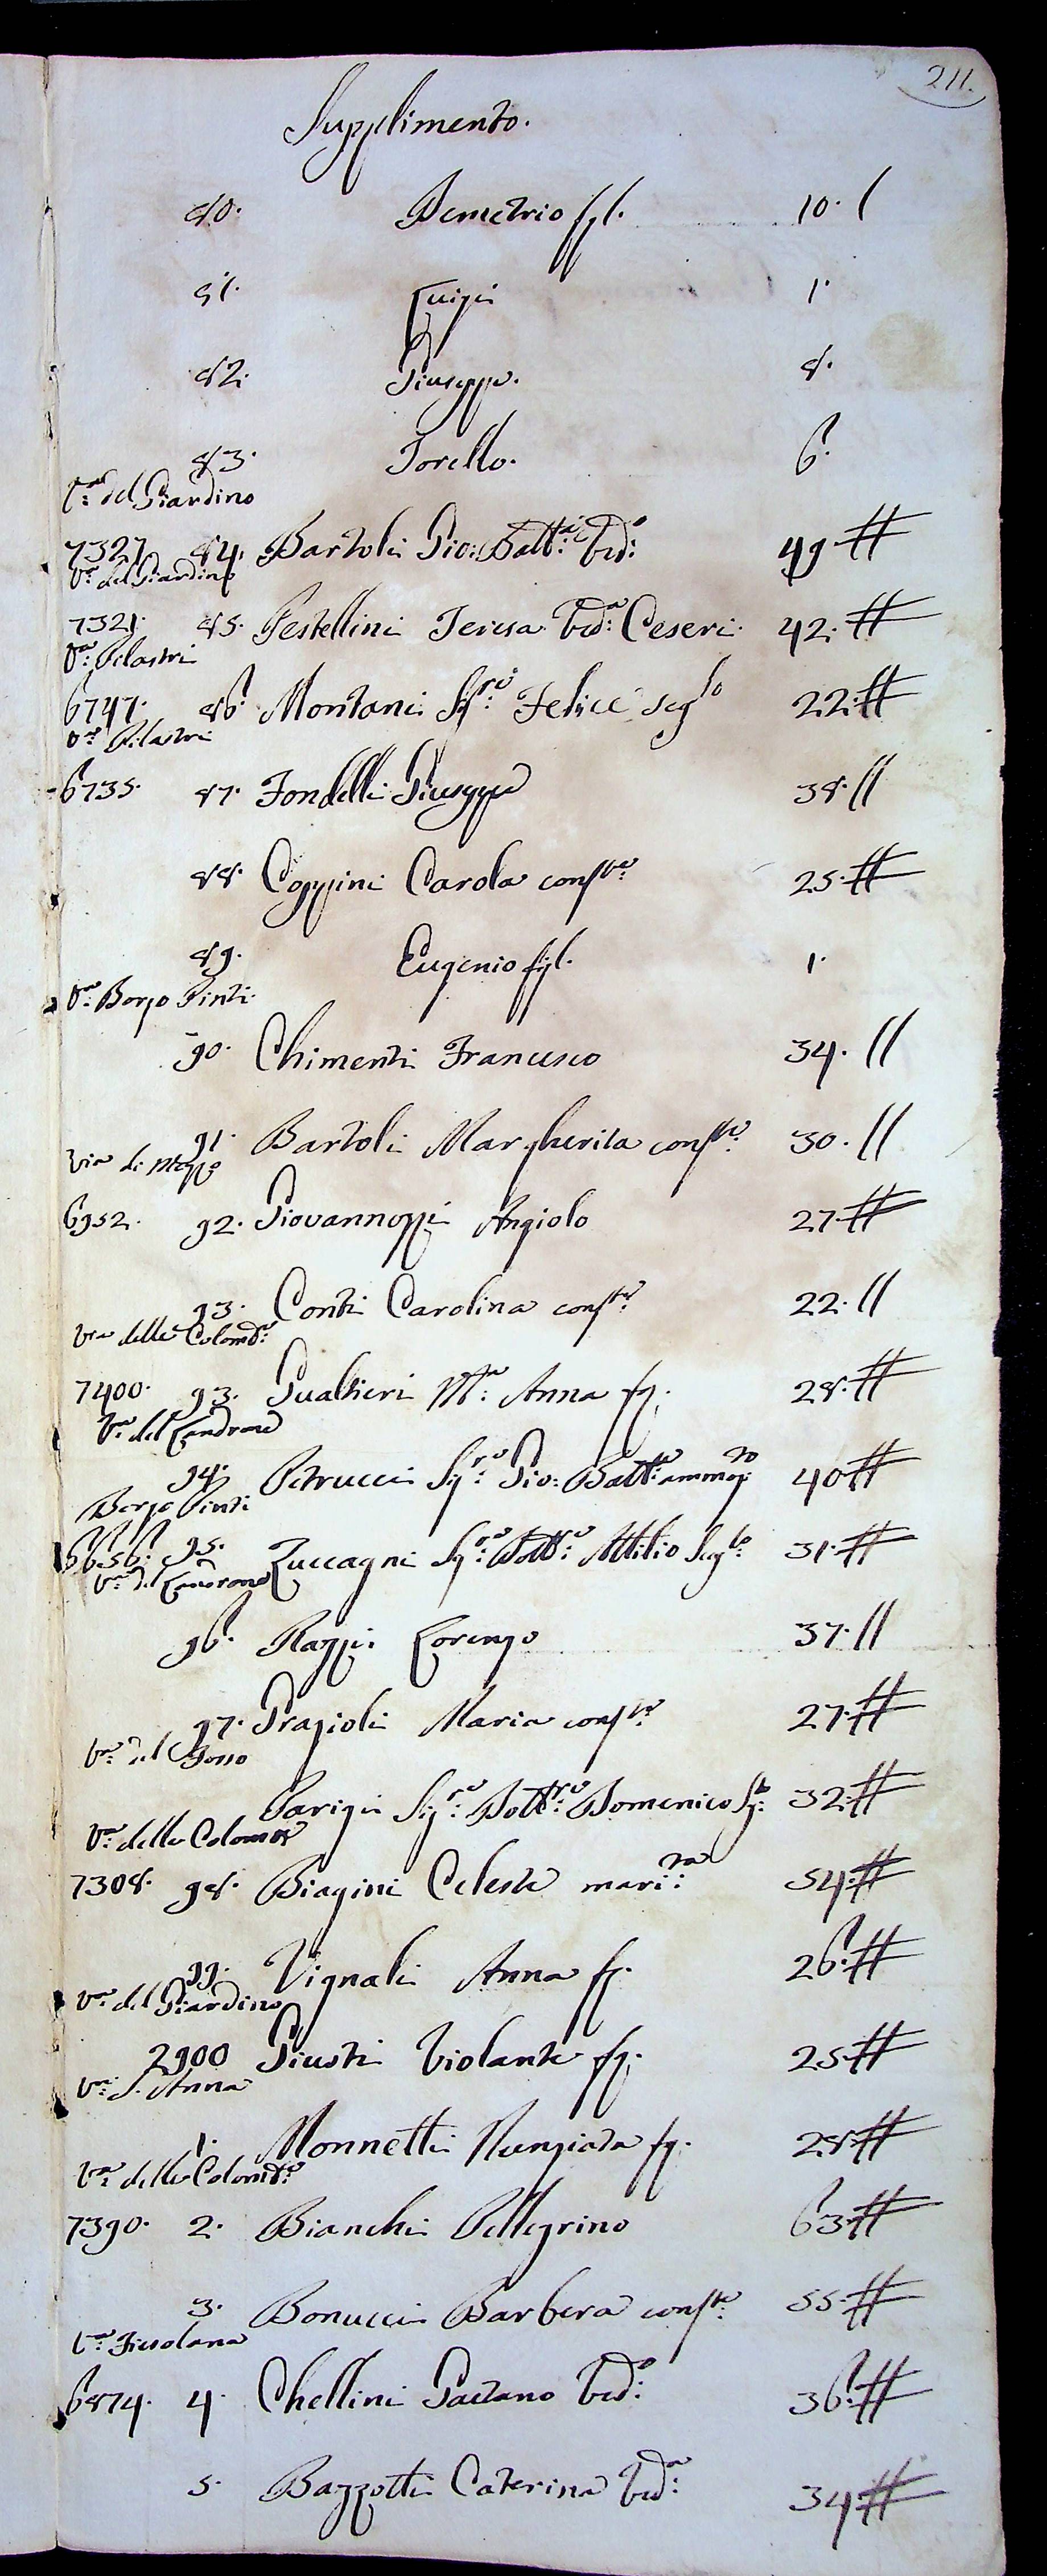 211.
Supplimento.
80. Demetrio figl. 10. /
81. Luigi 1.
82. Giuseppe. 8.
83. Torello. 6.
Va: del Giardino
7327 84. Bartoli Gio: Batta: Vedo: 49 #
Va: del Giardino
7321. 85. Pestellini Teresa Veda: Ceseri. 42. #
Va: Pilastri
6747. 86 Montani Sigre: Felice Scglo 22. #
Va: Pilastri
6735. 87. Fondelli Giuseppe 38. //
88. Coppini Carola conste: 25. #
89. Eugenio figl. 1.
Va: Borgo Pinti.
90. Chimenti Francesco 34. //
91. Bartoli Margherita conste: 30. //
Via di Mezzo
6952. 92. Giovannozzi Angiolo 27. #
93. Conti Carolina conste: 22. //
Via delle Colonne:
7400. 93. Gualtieri Ma: Anna fg. 28. #
Va: del Mandrone
94. Petrucci Sigre: Gio: Batta: ammogto 40 #
Borgo Pinti
6656. 95. Zuccagni Sigre: Dottre: Attilio Scglo: 31. #
Va: del Mandrone
96. Razzi Lorenzo 37. //
97. Grazioli Maria conste: 27. #
Va: del Fosso
Parigi Sigre: Dottre: Domenico Sglo: 32. #
Va: delle Colonne
7308. 98. Biagini Celeste marita: 54. #
99. Vignali Anna fg. 26. #
Va: del Giardino
2900 Giusti Violante fg. 25. #
Va: S. Anna
1. Monnetti Nunziata fg. 28. #
Va: delle Colonne:
7390. 2. Bianchi Pellegrino 63. #
3. Bonucci Barbera conste: 55. #
Va: Fiesolana
6874. 4. Chellini Gaetano Vedo: 36. #
5. Bazzotti Caterina Veda: 34. #